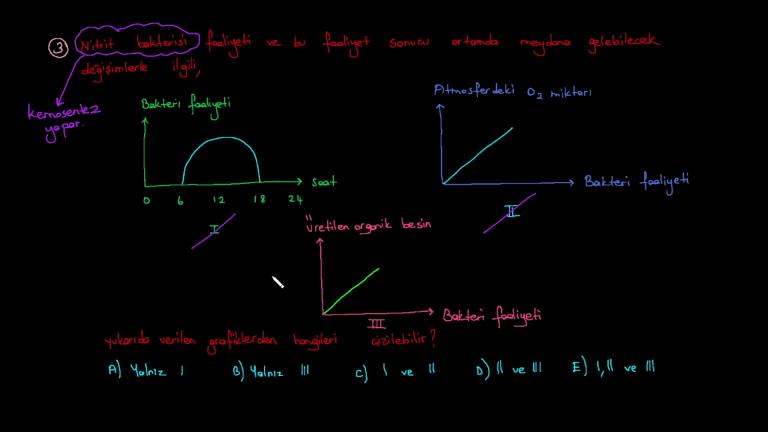 3 Nitrit bakterisi faaliyeti ve bu faaliyet sonucu ortamda meydana gelebilecek
değişimlerle ilgili,
kemosentez
yapar.
Bakteri faaliyeti
saat
0 6 12 18 24
I
Atmosferdeki O2 miktarı
Bakteri faaliyeti
II
Üretilen organik besin
Bakteri faaliyeti
III
yukarıda verilen grafiklerden hangileri çizilebilir?
A) Yalnız I B) Yalnız III C) I ve II D) II ve III E) I, II ve III